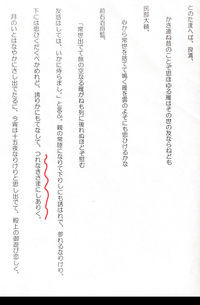 とのたまへば、良清、
かき連ね昔のことぞ思ほゆる雁はその世の友ならねども
民部大輔、
心から常世を捨てて鳴く雁を雲のよそにも思ひけるかな
前右近将監、
「常世出でて旅の空なる雁がねも列に後れぬほどぞ慰む
友惑はしては、いかに侍らまし」と言ふ。親の常陸になりて下りしにも誘はれで、参れるなりけり。
下には思ひくだくべかめれど、誇りかにもてなして、つれなきさまにしありく。
月のいとはなやかにさし出でたるに、今宵は十五夜なりけりと思し出でて、殿上の御遊び恋しく、